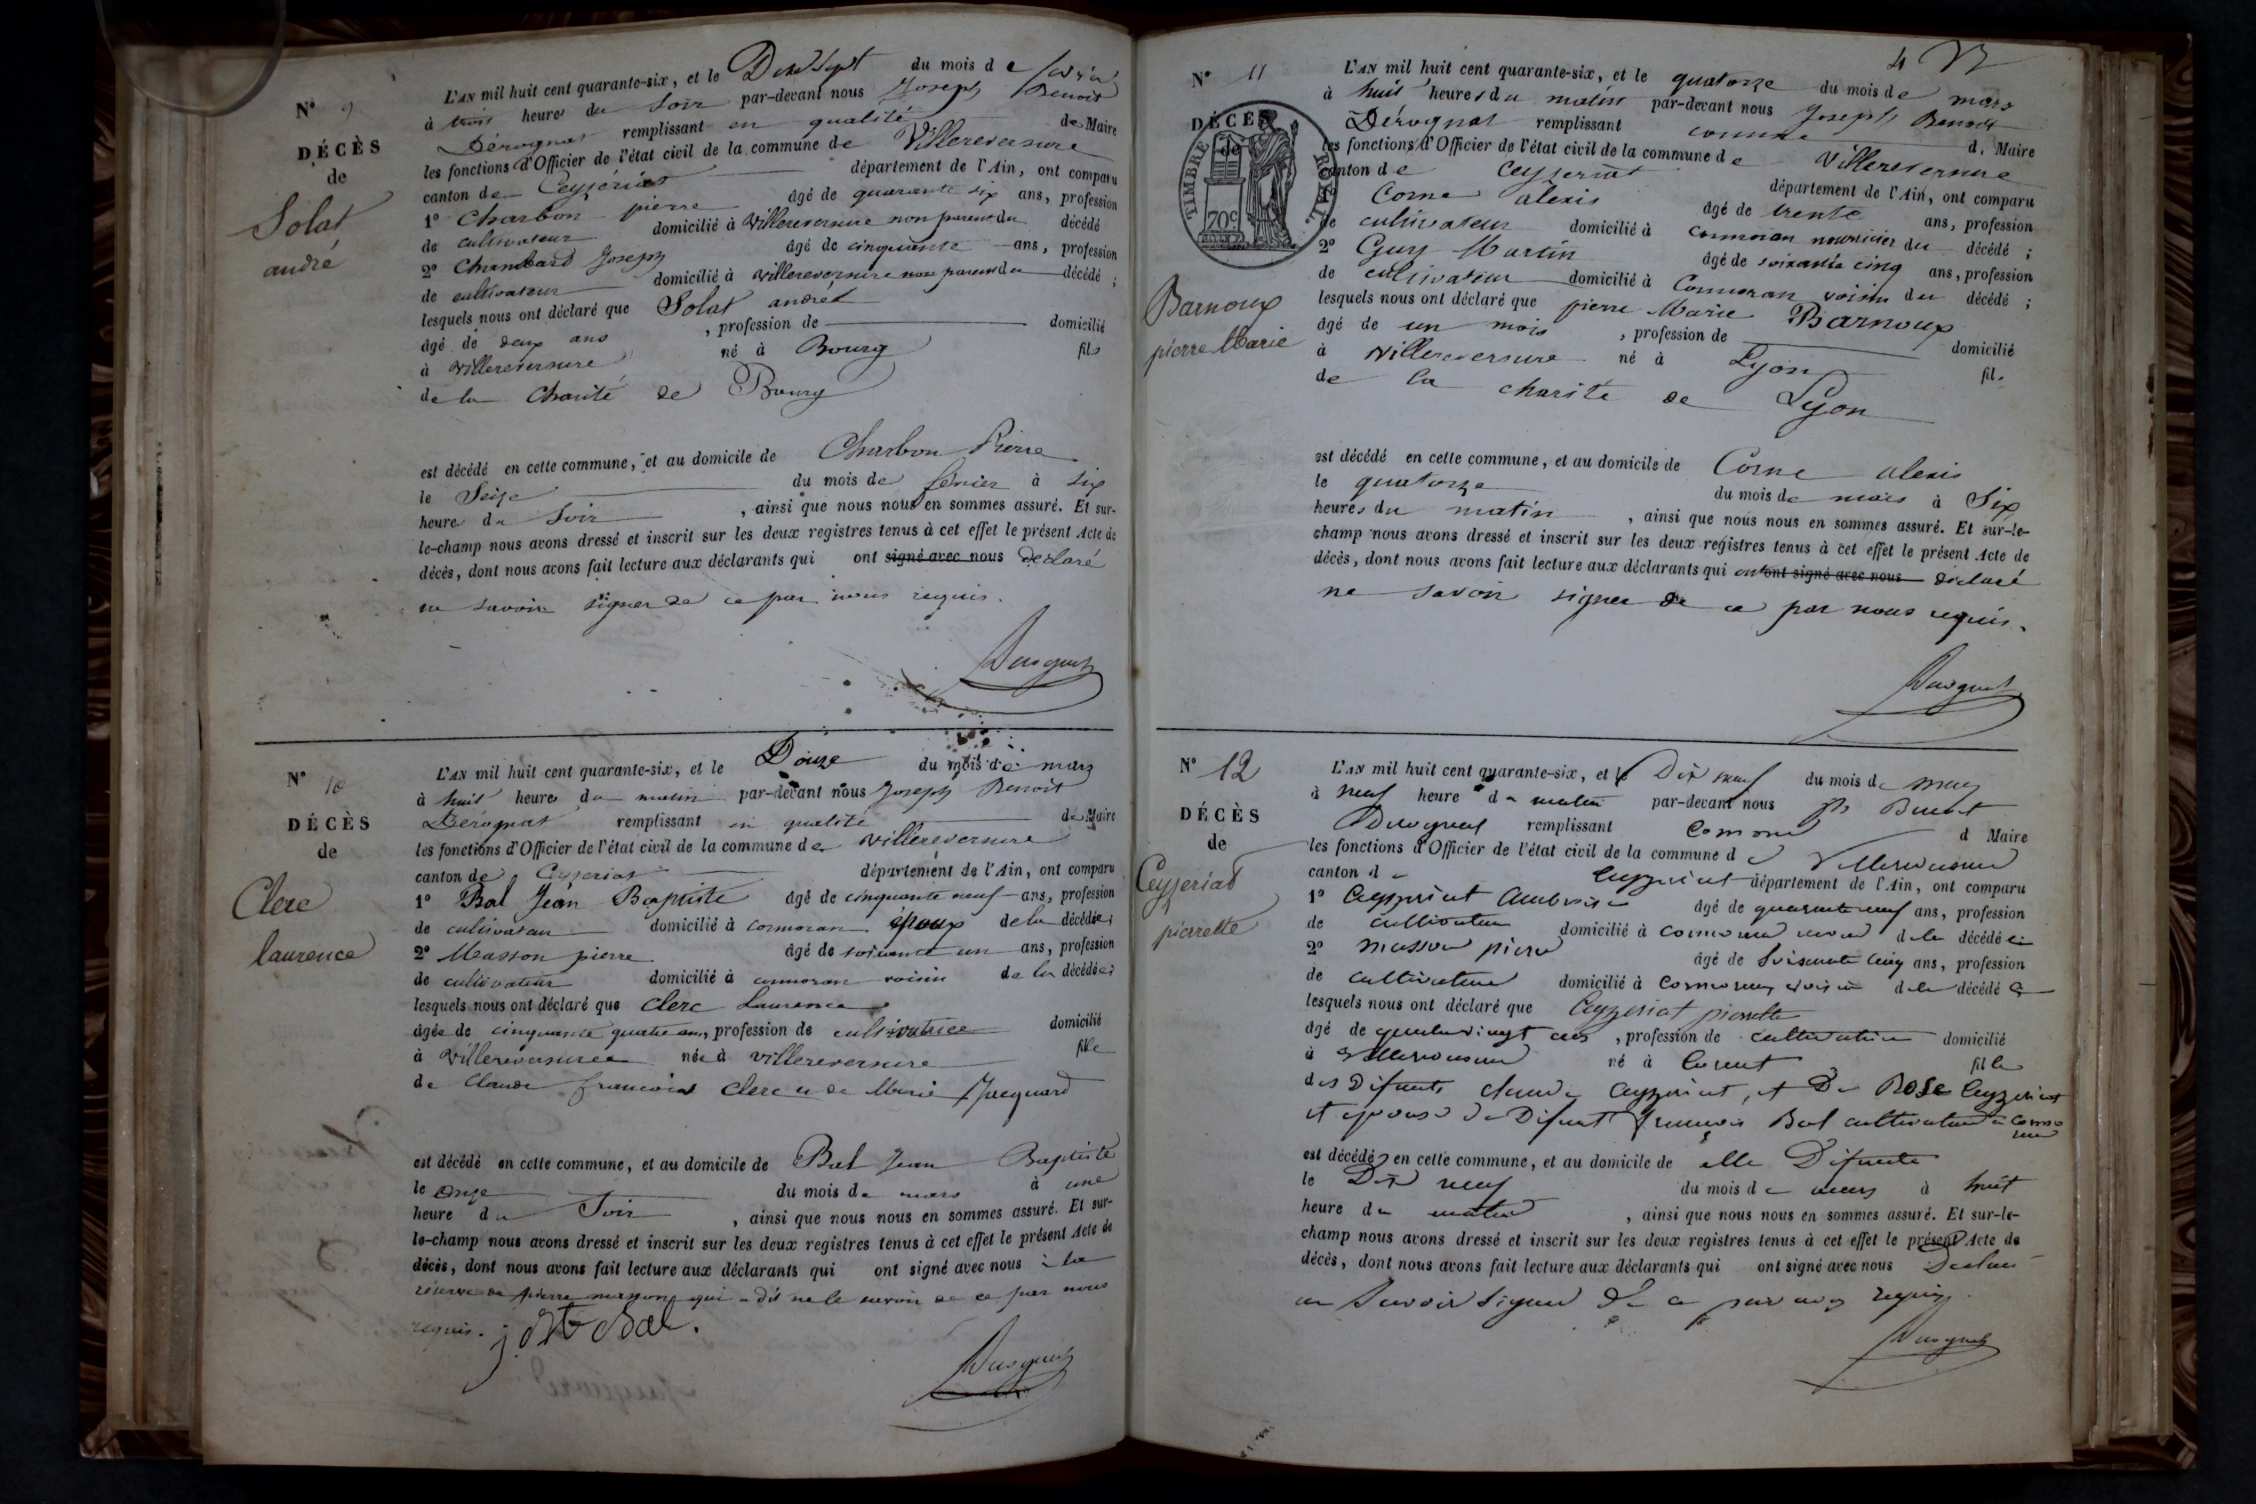 N° 9
DÉCÈS
de
Solat
andré
L'AN mil huit cent quarante-six, et le Dix Sept du mois de février
à trois heures du Soir par-devant nous Joseph Benoit
Dérognat remplissant en qualité de Maire
les fonctions d'Officier de l'état civil de la commune de Villereversure
canton de Ceyzériat département de l'Ain, ont comparu
1° Charbon pierre âgé de quarante six ans, profession
de cultivateur domicilié à Villereversure non parent du décédé
2° Chambard Joseph âgé de cinquante ans, profession
de cultivateur domicilié à villereversure non parent du décédé ;
lesquels nous ont déclaré que Solat andré
âgé de deux ans , profession de domicilié
à villereversure né à Bourg fils
de la Charité de Bourg
est décédé en cette commune, et au domicile de Charbon Pierre
le Seize du mois de février à six
heures du Soir , ainsi que nous nous en sommes assuré. Et sur-
le-champ nous avons dressé et inscrit sur les deux registres tenus à cet effet le présent Acte de
décès, dont nous avons fait lecture aux déclarants qui ont signé avec nous déclaré
ne savoir signer de ce par nous requis.
N° 10
DÉCÈS
de
Clerc
laurence
L'AN mil huit cent quarante-six, et le Douze du mois de mars
à huit heures du matin par-devant nous Joseph Benoit
Dérognat remplissant en qualité de Maire
les fonctions d'Officier de l'état civil de la commune de villereversure
canton de Ceyzeriat département de l'Ain, ont comparu
1° Bal Jean Baptiste âgé de cinquante neuf ans, profession
de cultivateur domicilié à cormoran époux de la décédée ;
2° Masson pierre âgé de soixante un ans, profession
de cultivateur domicilié à cormoran voisin de la décédée ;
lesquels nous ont déclaré que Clerc Laurence
âgée de cinquante quatre ans, profession de cultivatrice domicilié
à villereversure née à villereversure fille
de Claude françois Clerc et de Marie Jacquard
est décédé en cette commune, et au domicile de Bal Jean Baptiste
le onze du mois de mars à une
heure du Soir , ainsi que nous nous en sommes assuré. Et sur-
le-champ nous avons dressé et inscrit sur les deux registres tenus à cet effet le présent Acte de
décès, dont nous avons fait lecture aux déclarants qui ont signé avec nous à la
réserve de pierre masson qui a dit ne le savoir de ce par nous
requis. j Bte Bal.
4
N° 11
DÉCÈS
de
TIMBRE ROYAL
70c
Barnoux
pierre Marie
L'AN mil huit cent quarante-six, et le quatorze du mois de mars
à huit heures du matin par-devant nous Joseph Benoit
Dérognat remplissant comme d. Maire
les fonctions d'Officier de l'état civil de la commune de Villereversure
canton de Ceyzeriat département de l'Ain, ont comparu
Corne alexis âgé de trente ans, profession
de cultivateur domicilié à Cormoran nourricier du décédé ;
2° Guy Martin âgé de soixante cinq ans, profession
de cultivateur domicilié à Cormoran voisin du décédé ;
lesquels nous ont déclaré que pierre Marie Barnoux
âgé de un mois , profession de domicilié
à villereversure né à Lyon fils
de la charité de Lyon
est décédé en cette commune, et au domicile de Corne alexis
le quatorze du mois de mars à Six
heures du matin , ainsi que nous nous en sommes assuré. Et sur-le-
champ nous avons dressé et inscrit sur les deux registres tenus à cet effet le présent Acte de
décès, dont nous avons fait lecture aux déclarants qui ont ont signé avec nous déclaré
ne savoir signer de ce par nous requis.
N° 12
DÉCÈS
de
Ceyzeriat
pierrette
L'AN mil huit cent quarante-six, et le Dix neuf du mois de mars
à neuf heure du matin par-devant nous Jh Benoit
Dérognat remplissant comme d Maire
les fonctions d'Officier de l'état civil de la commune d Villereversure
canton d Ceyzériat département de l'Ain, ont comparu
1° Ceyzériat Ambroise âgé de quarante neuf ans, profession
de cultivateur domicilié à cormoran de la décédé
2° masson pierre âgé de Soixante cinq ans, profession
de cultivateur domicilié à Cormoran voisin de la décédé
lesquels nous ont déclaré que Ceyzeriat pierrette
âgé de quatrevingt ans , profession de cultivatrice domicilié
à villereversure né à fille
des Défunts claude Ceyzériat, et De Rose Ceyzériat
et épouse de Défunt françois Bal cultivateur à Cormo
ran
est décédé en cette commune, et au domicile de elle Défunte
le Dix neuf du mois de mars à huit
heure du matin , ainsi que nous nous en sommes assuré. Et sur-le-
champ nous avons dressé et inscrit sur les deux registres tenus à cet effet le présent Acte de
décès, dont nous avons fait lecture aux déclarants qui ont signé avec nous Déclaré
ne Savoir Signer De ce par nous requis.